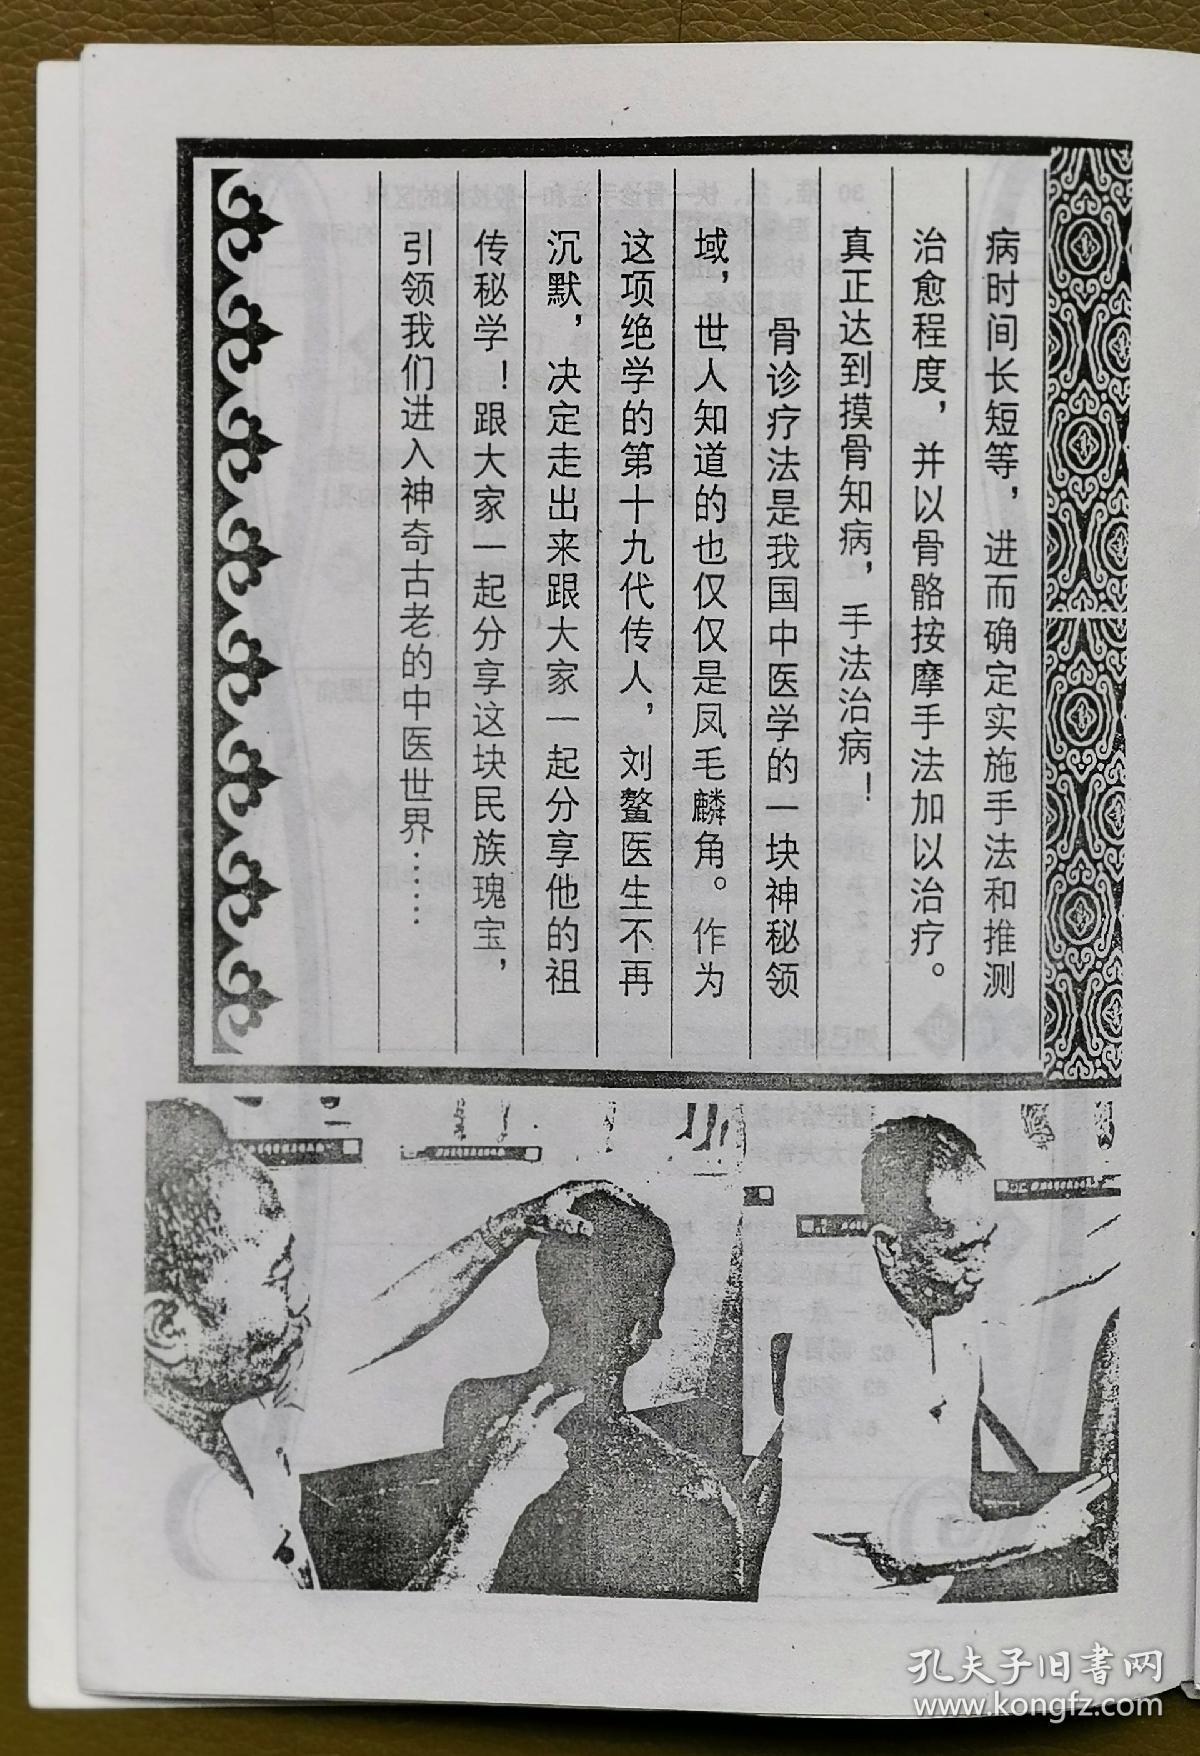 病时间长短等，进而确定实施手法和推测
治愈程度，并以骨骼按摩手法加以治疗。
真正达到摸骨知病，手法治病！
骨诊疗法是我国中医学的一块神秘领
域，世人知道的也仅仅是凤毛麟角。作为
这项绝学的第十九代传人，刘鳌医生不再
沉默，决定走出来跟大家一起分享他的祖
传秘学！跟大家一起分享这块民族瑰宝，
引领我们进入神奇古老的中医世界……
孔夫子旧书网
www.kongfz.com